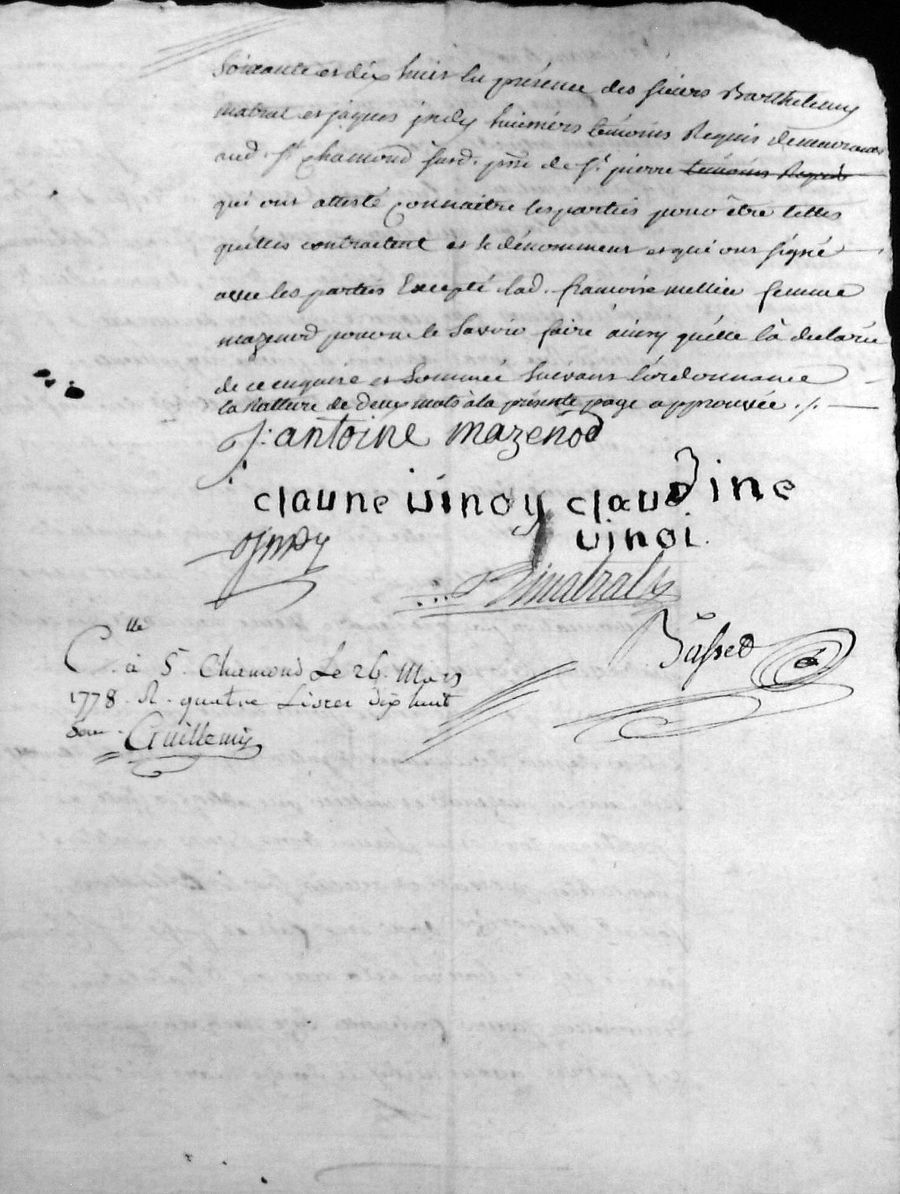 soixante et dix huit En présence des sieurs Barthelemy
matrat et jaques jmdy huissiers temoins Requis demeurants
aud. St. chamond sur d. psse de St. pierre temoins Requis
qui ont attesté connaitre les parties pour être telles
qu'elles contractent et se dénomment et qui ont signé
avec les parties Excepté lad. francoise mellier femme
mazenod pour ne le Savoir faire ainsy qu'elle l'a declaré
de ce enquise et Sommée Suivant l'ordonnance
la Ratture de deux mots a la présente page approuvée ./.
J: antoine mazenod
claune vinoy claudine
vinoi.
jmdy
B matrat
Basset
C.lle à St. Chamond Le 24. Mars
1778 R. quatre Livres dix huit
Sous. Guillemin